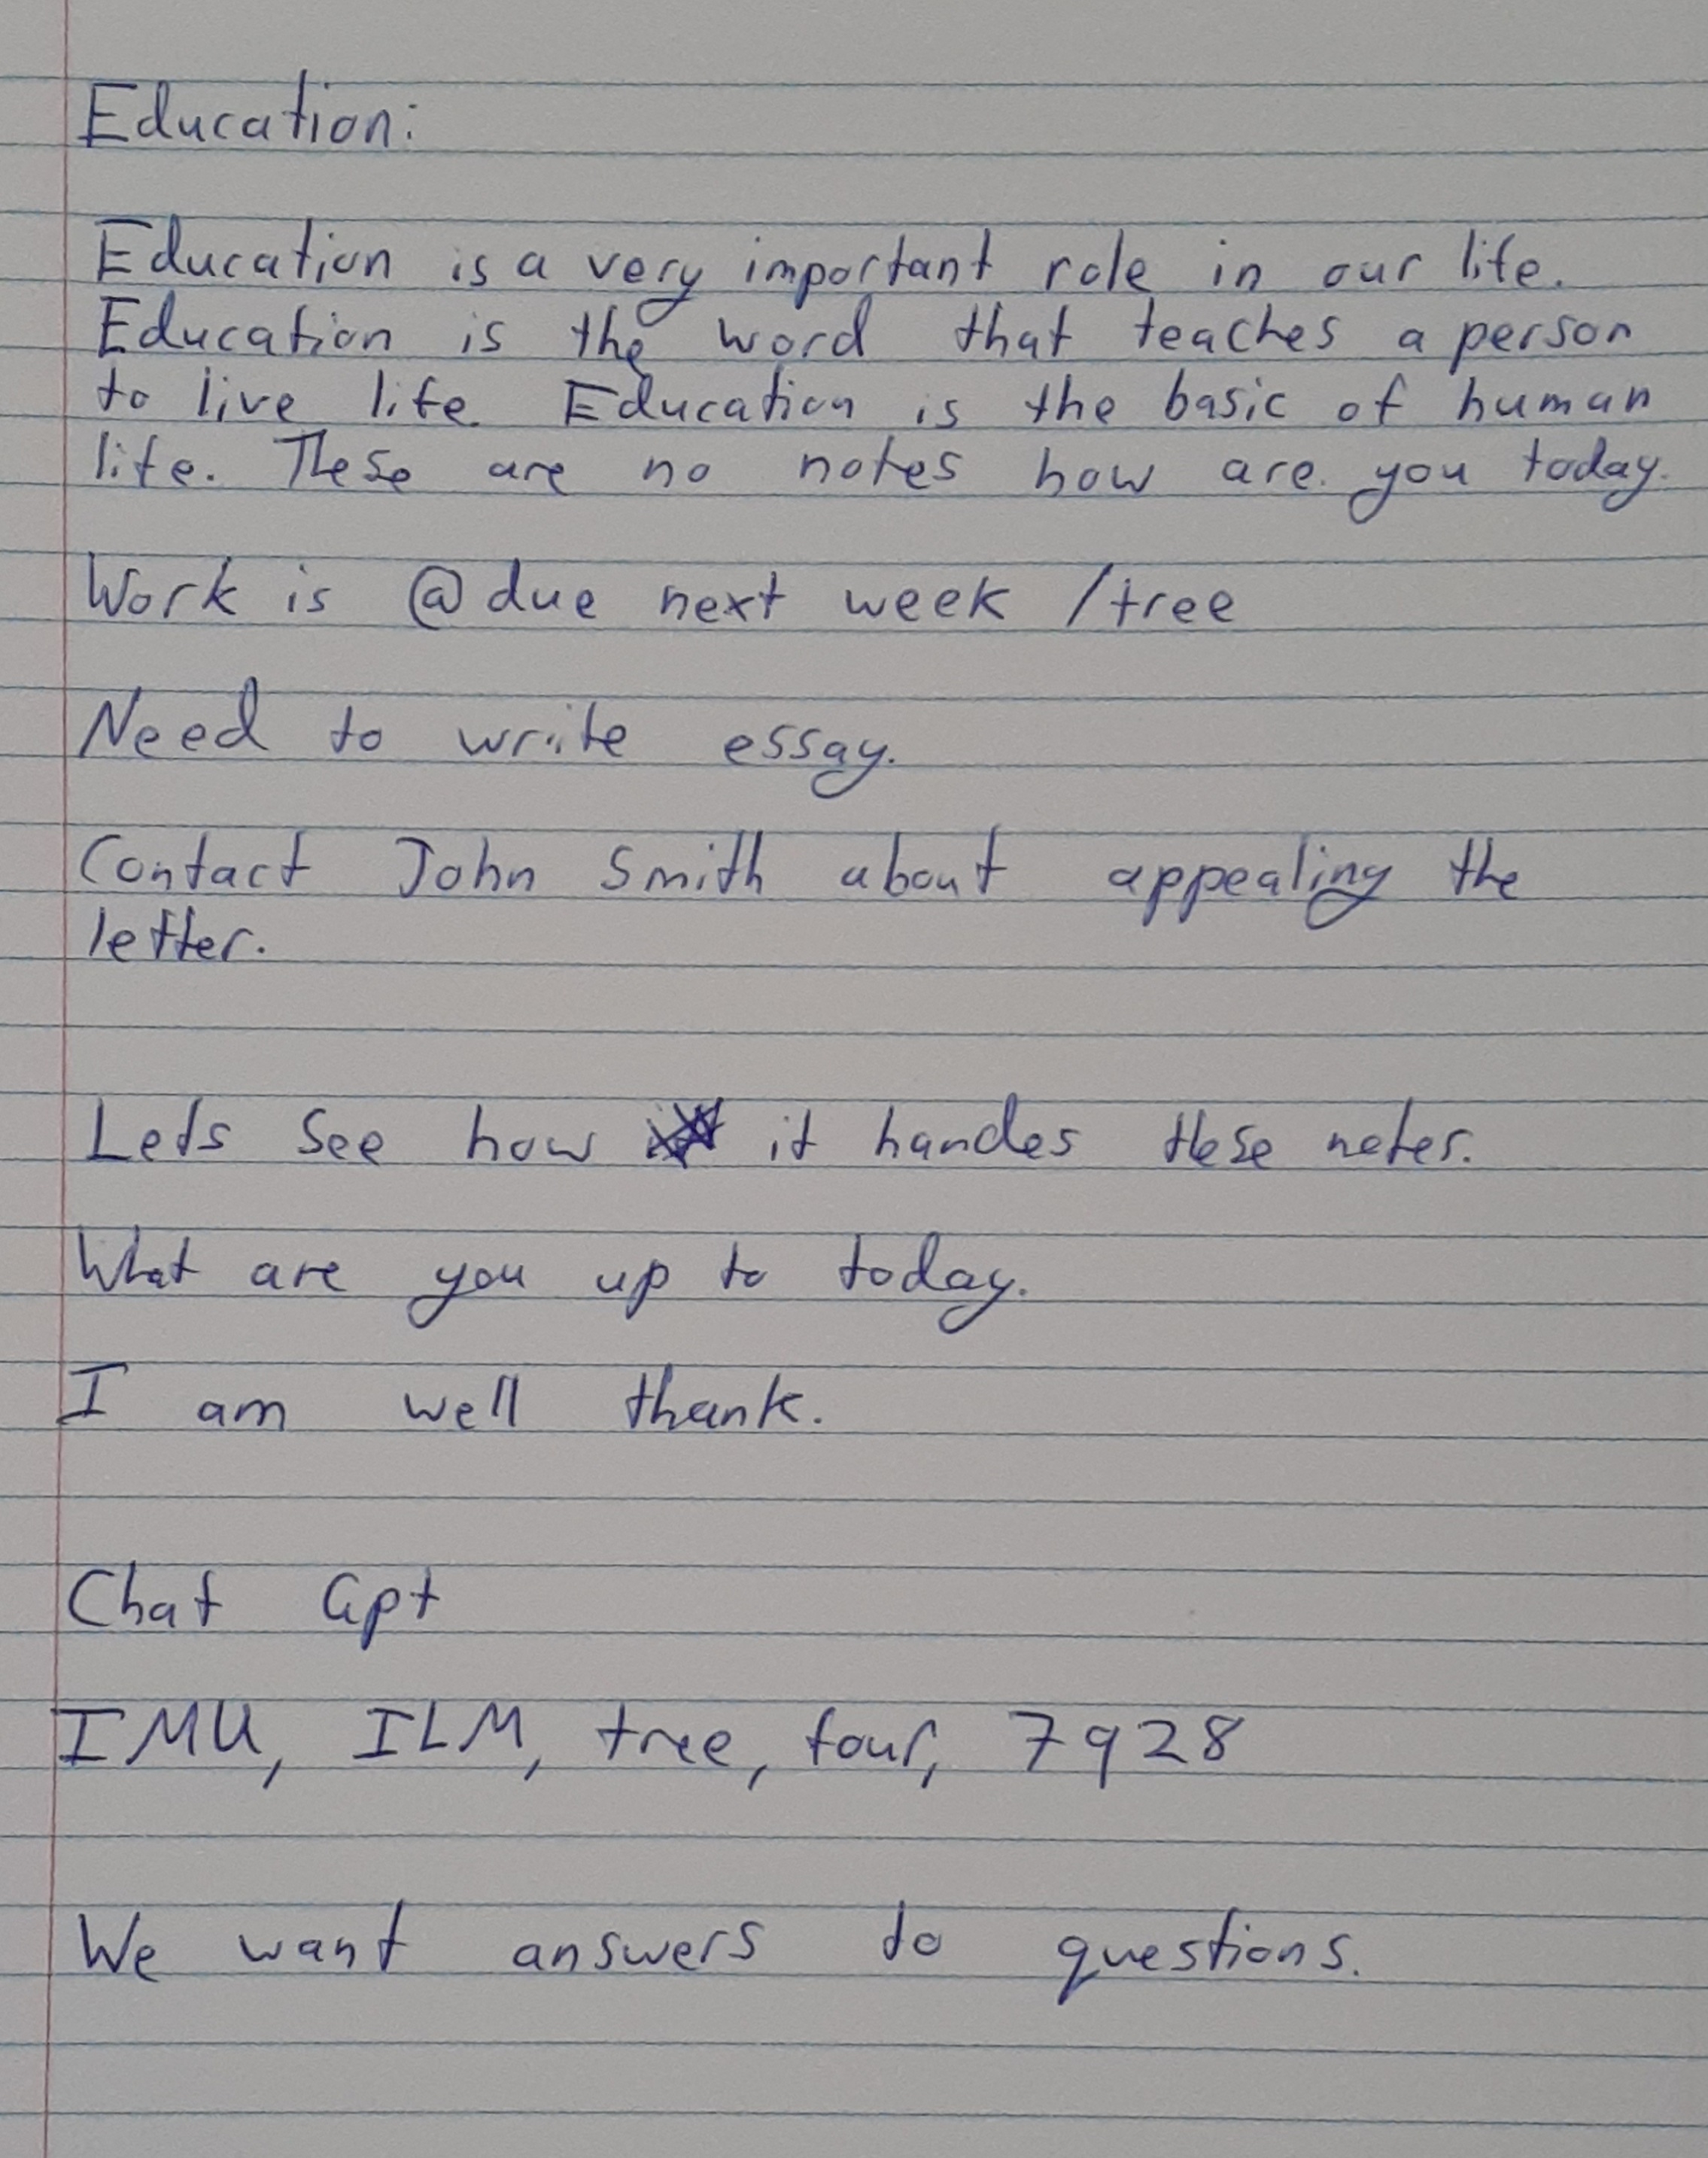 Education:
Education is a very important role in our life.
Education is the word that teaches a person
to live life. Education is the basic of human
life. These are no notes how are you today.
Work is @due next week /tree
Need to write essay.
Contact John Smith about appealing the
letter.
Lets see how it handes these notes.
What are you up to today.
I am well thank.
Chat Gpt
IMU, ILM, tree, four, 7928
We want answers to questions.